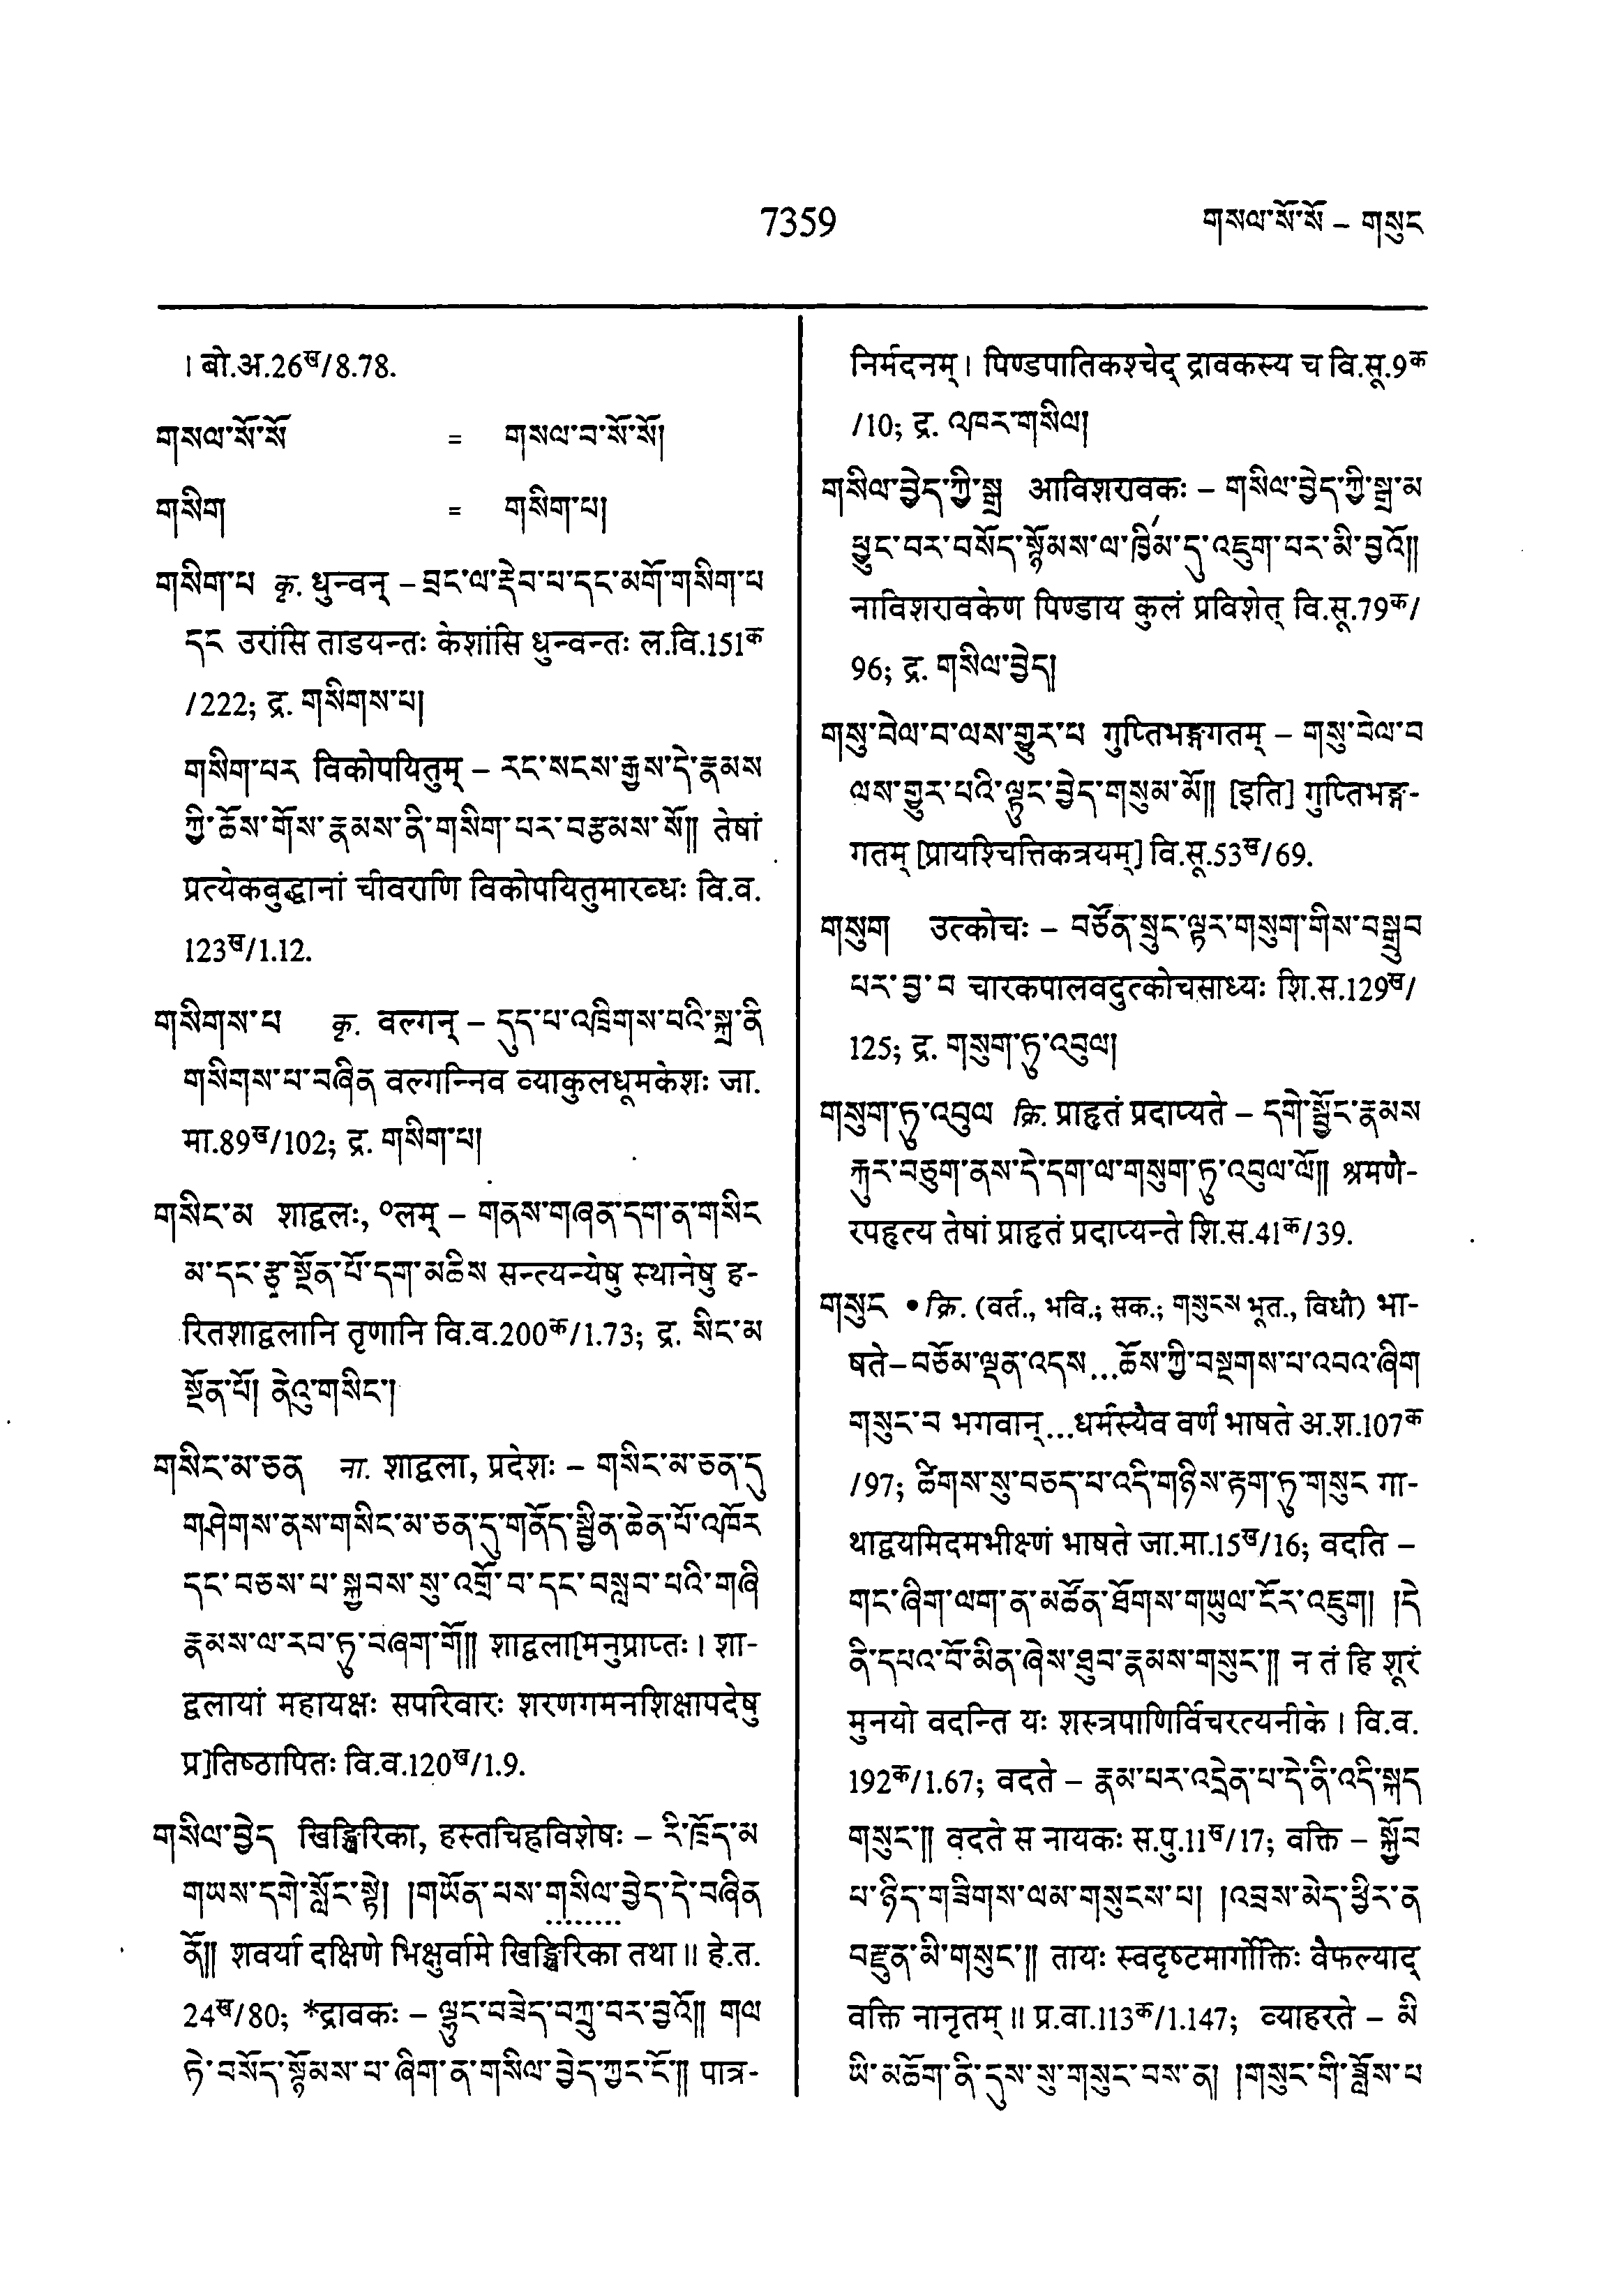 7359
གསལ་སོ་སོ – གསུང
। बो.अ.26ख/8.78.
གསལ་སོ་སོ = གསལ་བ་སོ་སོ།
གསིག = གསིག་པ།
གསིག་པ कृ. धुन्वन् – བྲང་ལ་རྡེབ་པ་དང་མགོ་གསིག་པ
དང उरांसि ताडयन्तः केशांसि धुन्वन्तः ल.वि.151क
/222; द्र. གསིགས་པ།
གསིག་པར विकोपयितुम् – རང་སངས་རྒྱས་དེ་རྣམས
ཀྱི་ཆོས་གོས་རྣམས་ནི་གསིག་པར་བརྩམས་སོ༎ तेषां
प्रत्येकबुद्धानां चीवराणि विकोपयितुमारब्धः वि.व.
123ख/1.12.
གསིགས་པ कृ. वल्गन् – དུད་པ་འཁྲིགས་པའི་སྐྲ་ནི
གསིགས་པ་བཞིན वल्गन्निव व्याकुलधूमकेशः जा.
मा.89ख/102; द्र. གསིག་པ།
གསིང་མ शाद्वलः, ०लम् – གནས་གཞན་དག་ན་གསིང
མ་དང་རྩྭ་སྔོན་པོ་དག་མཆིས सन्त्यन्येषु स्थानेषु ह-
रितशाद्वलानि तृणानि वि.व.200क/1.73; द्र. སིང་མ
སྔོན་པོ། ནེའུ་གསིང་།
གསིང་མ་ཅན ना. शाद्वला, प्रदेशः – གསིང་མ་ཅན་དུ
གཤེགས་ནས་གསིང་མ་ཅན་དུ་གནོད་སྦྱིན་ཆེན་པོ་འཁོར
དང་བཅས་པ་སྐྱབས་སུ་འགྲོ་བ་དང་བསླབ་པའི་གཞི
རྣམས་ལ་རབ་ཏུ་བཞག་གོ༎ शाद्वला[मनुप्राप्तः । शा-
द्वलायां महायक्षः सपरिवारः शरणगमनशिक्षापदेषु
प्र]तिष्ठापितः वि.व.120ख/1.9.
གསིལ་བྱེད खिङ्खिरिका, हस्तचिह्नविशेषः – རི་ཁྲོད་མ
གཡས་དགེ་སློང་སྟེ། །གཡོན་པས་གསིལ་བྱེད་དེ་བཞིན
ནོ༎ शवर्या दक्षिणे भिक्षुर्वामे खिङ्खिरिका तथा ॥ हे.त.
24ख/80; *द्रावकः – ལྷུང་བཟེད་བཀྲུ་བར་བྱའོ༎ གལ
ཏེ་བསོད་སྙོམས་པ་ཞིག་ན་གསིལ་བྱེད་ཀྱང་ངོ་༎ पात्र-
निर्मदनम् । पिण्डपातिकश्चेद् द्रावकस्य च वि.सू.9क
/10; द्र. འཁར་གསིལ།
གསིལ་བྱེད་ཀྱི་སྒྲ आविशरावकः – གསིལ་བྱེད་ཀྱི་སྒྲ་མ
ཕྱུང་བར་བསོད་སྙོམས་ལ་ཁྱིམ་དུ་འཇུག་པར་མི་བྱའོ༎
नाविशरावकेण पिण्डाय कुलं प्रविशेत् वि.सू.79क/
96; द्र. གསིལ་བྱེད།
གསུ་བེལ་བ་ལས་གྱུར་པ गुप्तिभङ्गगतम् – གསུ་བེལ་བ
ལས་གྱུར་པའི་ལྟུང་བྱེད་གསུམ་མོ༎ [इति] गुप्तिभङ्ग-
गतम् [प्रायश्चित्तिकत्रयम्] वि.सू.53ख/69.
གསུག उत्कोचः – བཙོན་སྲུང་ལྟར་གསུག་གིས་བསྒྲུབ
པར་བྱ་བ चारकपालवदुत्कोचसाध्यः शि.स.129ख/
125; द्र. གསུག་ཏུ་འབུལ།
གསུག་ཏུ་འབུལ क्रि. प्राहृतं प्रदाप्यते – དགེ་སྦྱོང་རྣམས
རྐུར་བཅུག་ནས་དེ་དག་ལ་གསུག་ཏུ་འབུལ་ལོ༎ श्रमणै-
रपहृत्य तेषां प्राहृतं प्रदाप्यन्ते शि.स.41क/39.
གསུང • क्रि. (वर्त., भवि.; सक.; གསུངས भूत., विधौ) भा-
षते – བཅོམ་ལྡན་འདས...ཆོས་ཀྱི་བསྔགས་པ་འབའ་ཞིག
གསུང་བ भगवान्...धर्मस्यैव वर्णं भाषते अ.श.107क
/97; ཚིགས་སུ་བཅད་པ་འདི་གཉིས་རྟག་ཏུ་གསུང गा-
थाद्वयमिदमभीक्ष्णं भाषते जा.मा.15ख/16; वदति –
གང་ཞིག་ལག་ན་མཚོན་ཐོགས་གཡུལ་ངོར་འཇུག། །དེ
ནི་དཔའ་བོ་མིན་ཞེས་ཐུབ་རྣམས་གསུང་༎ न तं हि शूरं
मुनयो वदन्ति यः शस्त्रपाणिर्विचरत्यनीके । वि.व.
192क/1.67; वदते – རྣམ་པར་འདྲེན་པ་དེ་ནི་འདི་སྐད
གསུང་༎ वदते स नायकः स.पु.11ख/17; वक्ति – སྐྱོབ
པ་ཉིད་གཟིགས་ལམ་གསུངས་པ། །འབྲས་མེད་ཕྱིར་ན
བརྫུན་མི་གསུང་༎ तायः स्वदृष्टमार्गोक्तिः वैफल्याद्
वक्ति नानृतम् ॥ प्र.वा.113क/1.147; व्याहरते – མི
ཡི་མཆོག་ནི་དུས་སུ་གསུང་བས་ན། །གསུང་གི་བློས་པ